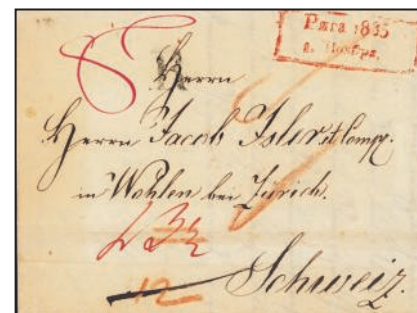 Рига 1835
Ноября.
Herrn
Herrn Jacob Isler et Comp:
in Wohlen bei Zürich.
12
Schweiz.